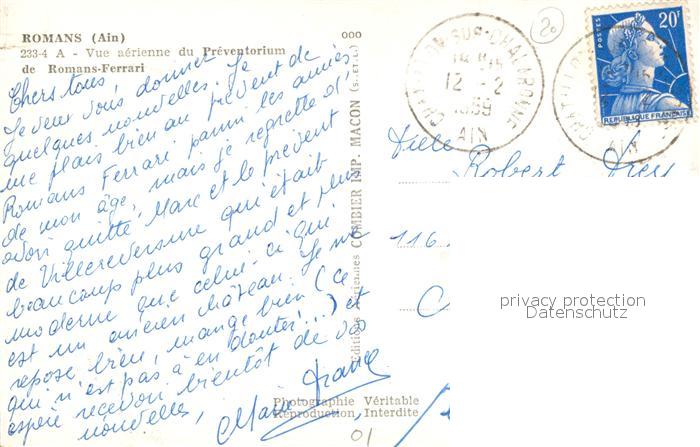 ROMANS (Ain)
233-4 A - Vue aérienne du Préventorium
de Romans-Ferrari
000
20
Chers tous,
Je veux vous donner
quelques nouvelles. Je
me plais bien au prévent de
Romans Ferrari parmi les amies
de mon âge, mais je regrette d'
avoir quitté Marc et le prévent
de Villereversure qui était
beaucoup plus grand et plus
moderne que celui-ci qui
est un ancien château. Je me
repose bien, mange bien (ce
qui n'est pas à en douter...) et
espère recevoir bientôt de vos
nouvelles,
Marie France
Editions Aériennes COMBIER IMP. MACON (S.-et-L.)
Photographie Véritable
Reproduction Interdite
01
CHATILLON-SUR-CHALARONNE
12 - 2
AIN
POSTES
20F
REPUBLIQUE FRANÇAISE
CHATILLON
AIN
Robert
116
privacy protection
Datenschutz